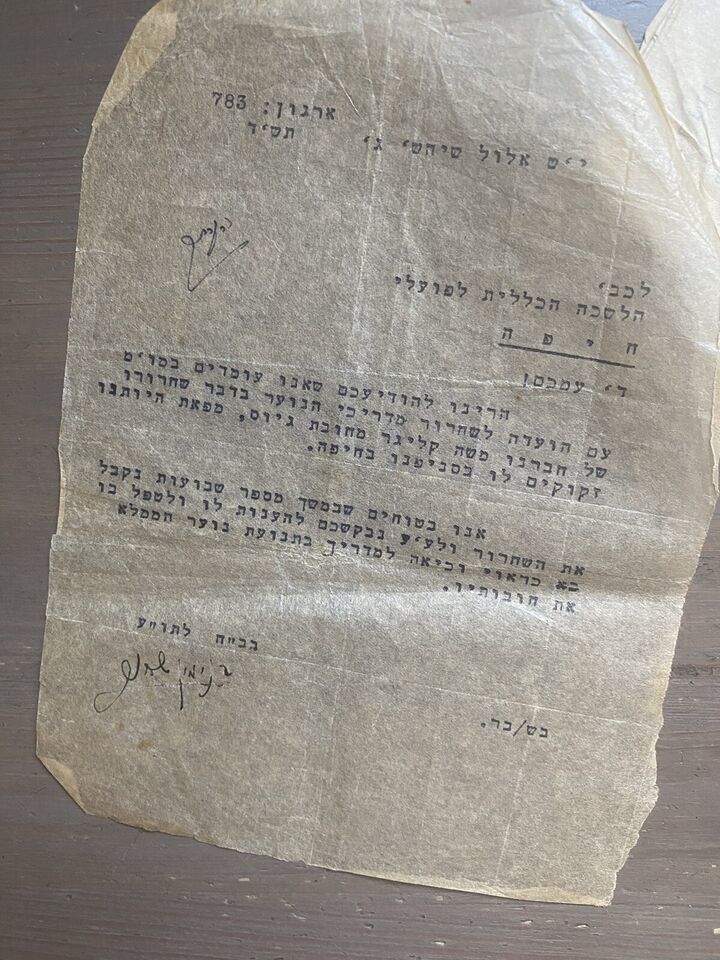 ארגון: 783
י"ט אלול שיחש' ג' תש"ד
לכב'
הלשכה הכללית לפועלי
ח י פ ה
ד' עמכםן
הרינו להודיעכם שאנו עומדים במו"מ
עם הועדה לשחרור מדריכי הנוער בדבר שחרורו
של חברנו משה קליגר מחובת גיוס, מפאת היותנו
זקוקים לו בסניפנו בחיפה.
אנו בטוחים שבמשך מספר שבועות נקבל
את השחרור ולע"ע נבקשכם להענות לו ולטפל בו
כראוי וכיאה למדריך בתנועת נוער הממלא
את חובותיו.
בב"ח לתו"ע
בש/בר.